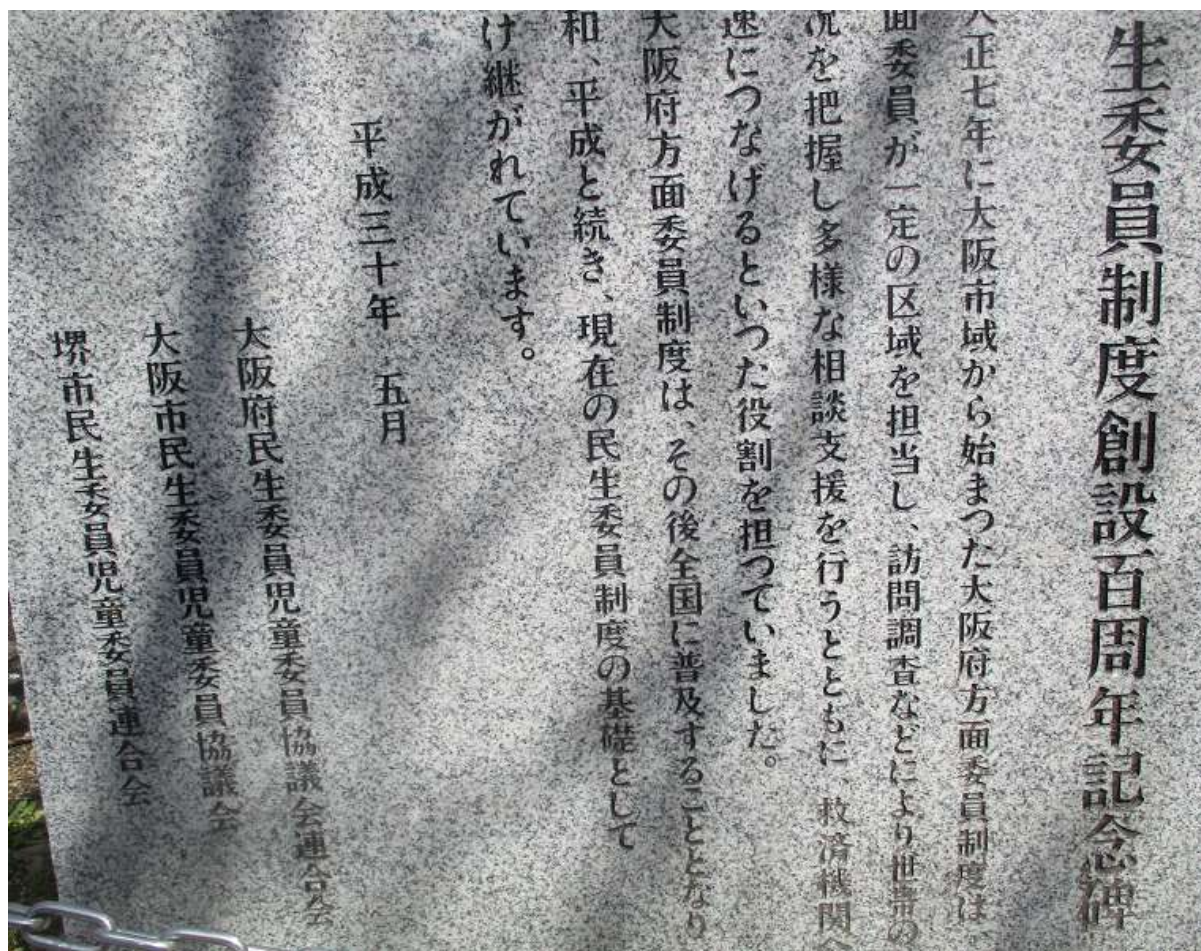 生委員制度創設百周年記念碑
大正七年に大阪市域から始まつた大阪府方面委員制度は
面委員が一定の区域を担当し、訪問調査などにより世帯の
況を把握し多様な相談支援を行うとともに、救済機関へ
速につなげるといつた役割を担つていました。
大阪府方面委員制度は、その後全国に普及することとなり
和、平成と続き、現在の民生委員制度の基礎として
け継がれています。
平成三十年 五月
大阪府民生委員児童委員協議会連合会
大阪市民生委員児童委員協議会
堺市民生委員児童委員連合会